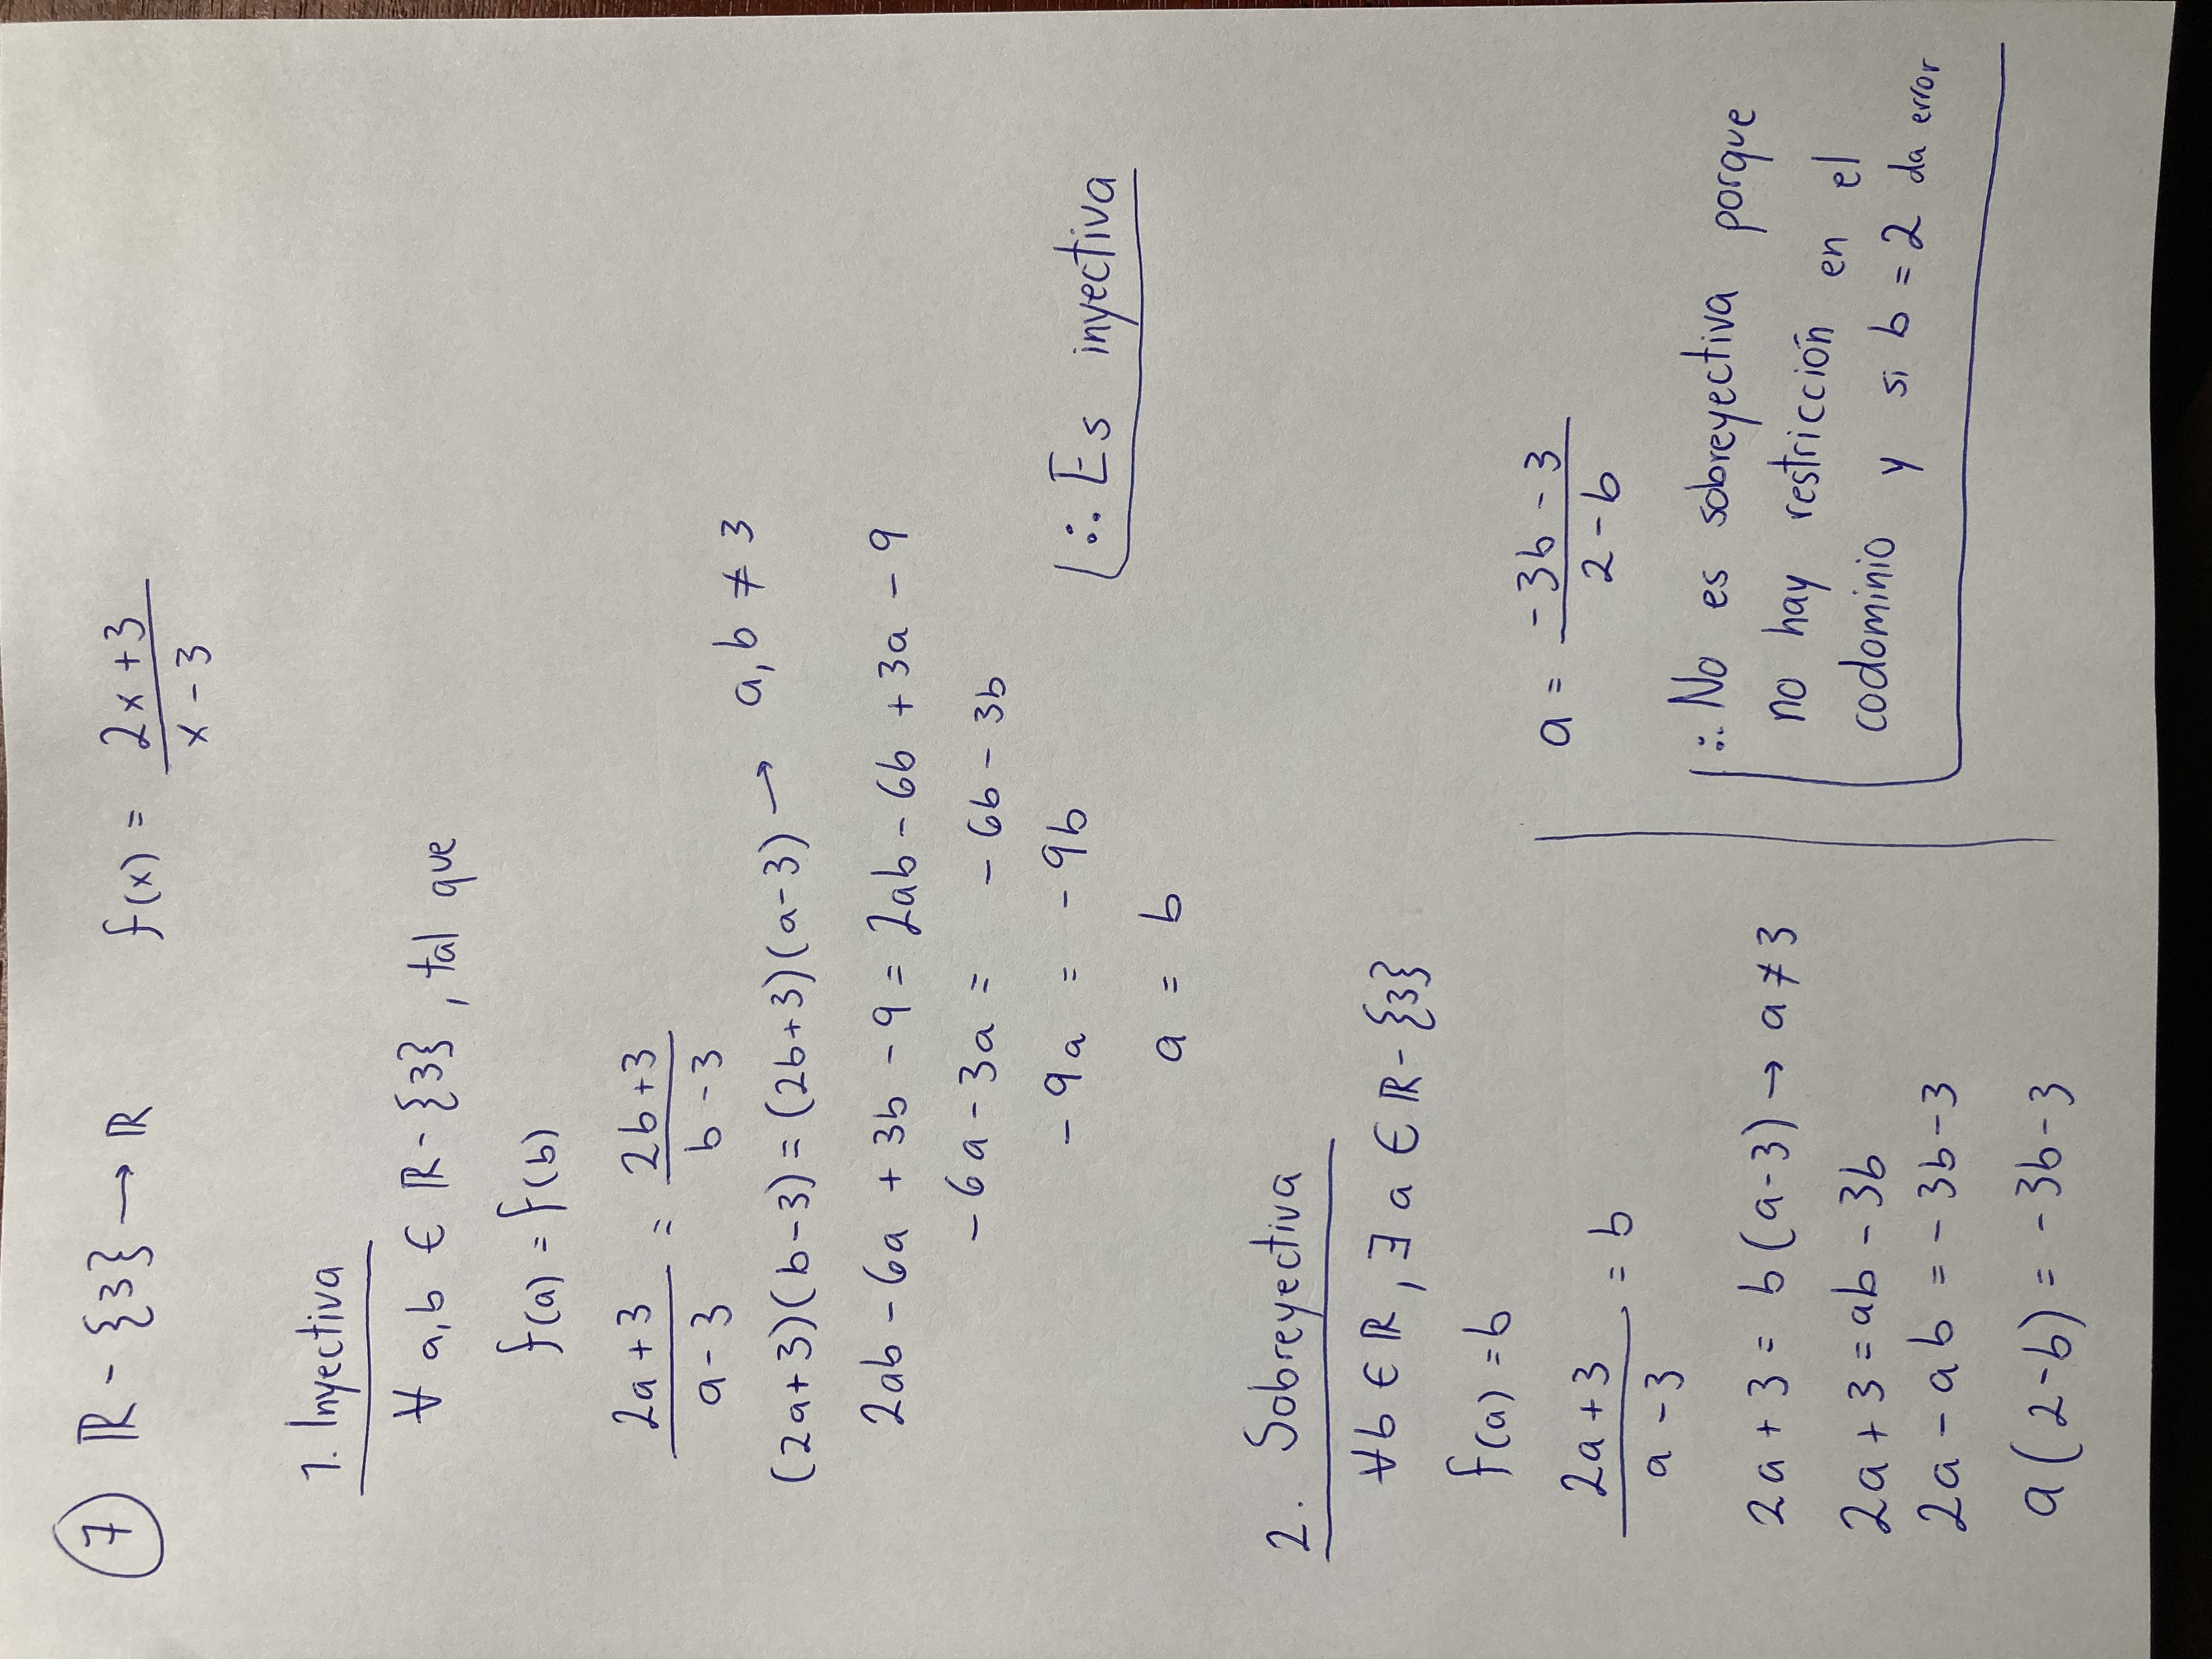 7 ℝ - {3} → ℝ f(x) = (2x+3)/(x-3)
1. Inyectiva
∀ a,b ∈ ℝ-{3}, tal que
f(a) = f(b)
(2a+3)/(a-3) = (2b+3)/(b-3)
(2a+3)(b-3) = (2b+3)(a-3) → a,b ≠ 3
2ab - 6a + 3b - 9 = 2ab - 6b + 3a - 9
-6a - 3a = -6b - 3b
-9a = -9b
∴ Es inyectiva
a = b
2. Sobreyectiva
∀b ∈ ℝ, ∃ a ∈ ℝ-{3}
f(a) = b
(2a+3)/(a-3) = b
2a + 3 = b(a-3) → a ≠ 3
2a + 3 = ab - 3b
2a - ab = -3b-3
a(2-b) = -3b-3
a = (-3b-3)/(2-b)
∴ No es sobreyectiva porque
no hay restricción en el
codominio y si b = 2 da error